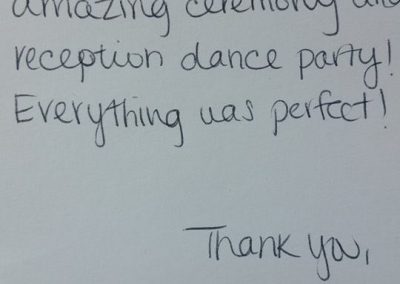 amazing ceremony and
reception dance party!
Everything was perfect!
Thank you,